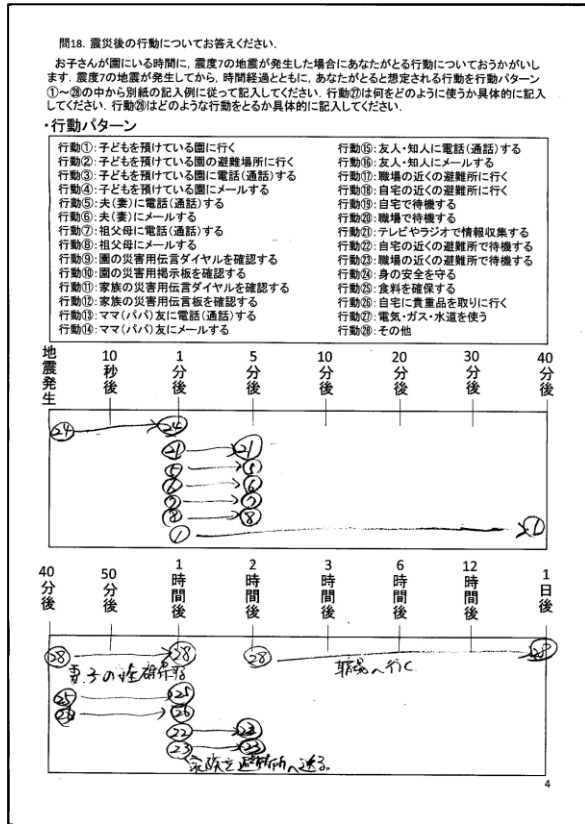 問18. 震災後の行動についてお答えください.
お子さんが園にいる時間に, 震度7の地震が発生した場合にあなたがとる行動についておうかがいし
ます. 震度7の地震が発生してから, 時間経過とともに, あなたがとると想定される行動を行動パターン
①～㉘の中から別紙の記入例に従って記入してください. 行動㉗は何をどのように使うか具体的に記入
してください. 行動㉘はどのような行動をとるか具体的に記入してください.
・行動パターン
行動①：子どもを預けている園に行く
行動②：子どもを預けている園の避難場所に行く
行動③：子どもを預けている園に電話(通話)する
行動④：子どもを預けている園にメールする
行動⑤：夫(妻)に電話(通話)する
行動⑥：夫(妻)にメールする
行動⑦：祖父母に電話(通話)する
行動⑧：祖父母にメールする
行動⑨：園の災害用伝言ダイヤルを確認する
行動⑩：園の災害用掲示板を確認する
行動⑪：家族の災害用伝言ダイヤルを確認する
行動⑫：家族の災害用伝言板を確認する
行動⑬：ママ(パパ)友に電話(通話)する
行動⑭：ママ(パパ)友にメールする
行動⑮：友人・知人に電話(通話)する
行動⑯：友人・知人にメールする
行動⑰：職場の近くの避難所に行く
行動⑱：自宅の近くの避難所に行く
行動⑲：自宅で待機する
行動⑳：職場で待機する
行動㉑：テレビやラジオで情報収集する
行動㉒：自宅の近くの避難所で待機する
行動㉓：職場の近くの避難所で待機する
行動㉔：身の安全を守る
行動㉕：食料を確保する
行動㉖：自宅に貴重品を取りに行く
行動㉗：電気・ガス・水道を使う
行動㉘：その他
地震発生 10秒後 1分後 5分後 10分後 20分後 30分後 40分後
㉔ ㉔
㉑ ㉑
⑤ ⑤
⑥ ⑥
⑦ ⑦
⑧ ⑧
① ①
40分後 50分後 1時間後 2時間後 3時間後 6時間後 12時間後 1日後
㉘ ㉘ ㉘ ㉘
妻、子の 職場へ行く
㉕ ㉕
㉖ ㉖
㉒ ㉒
㉓ ㉓
家族を避難所へ送る。
4